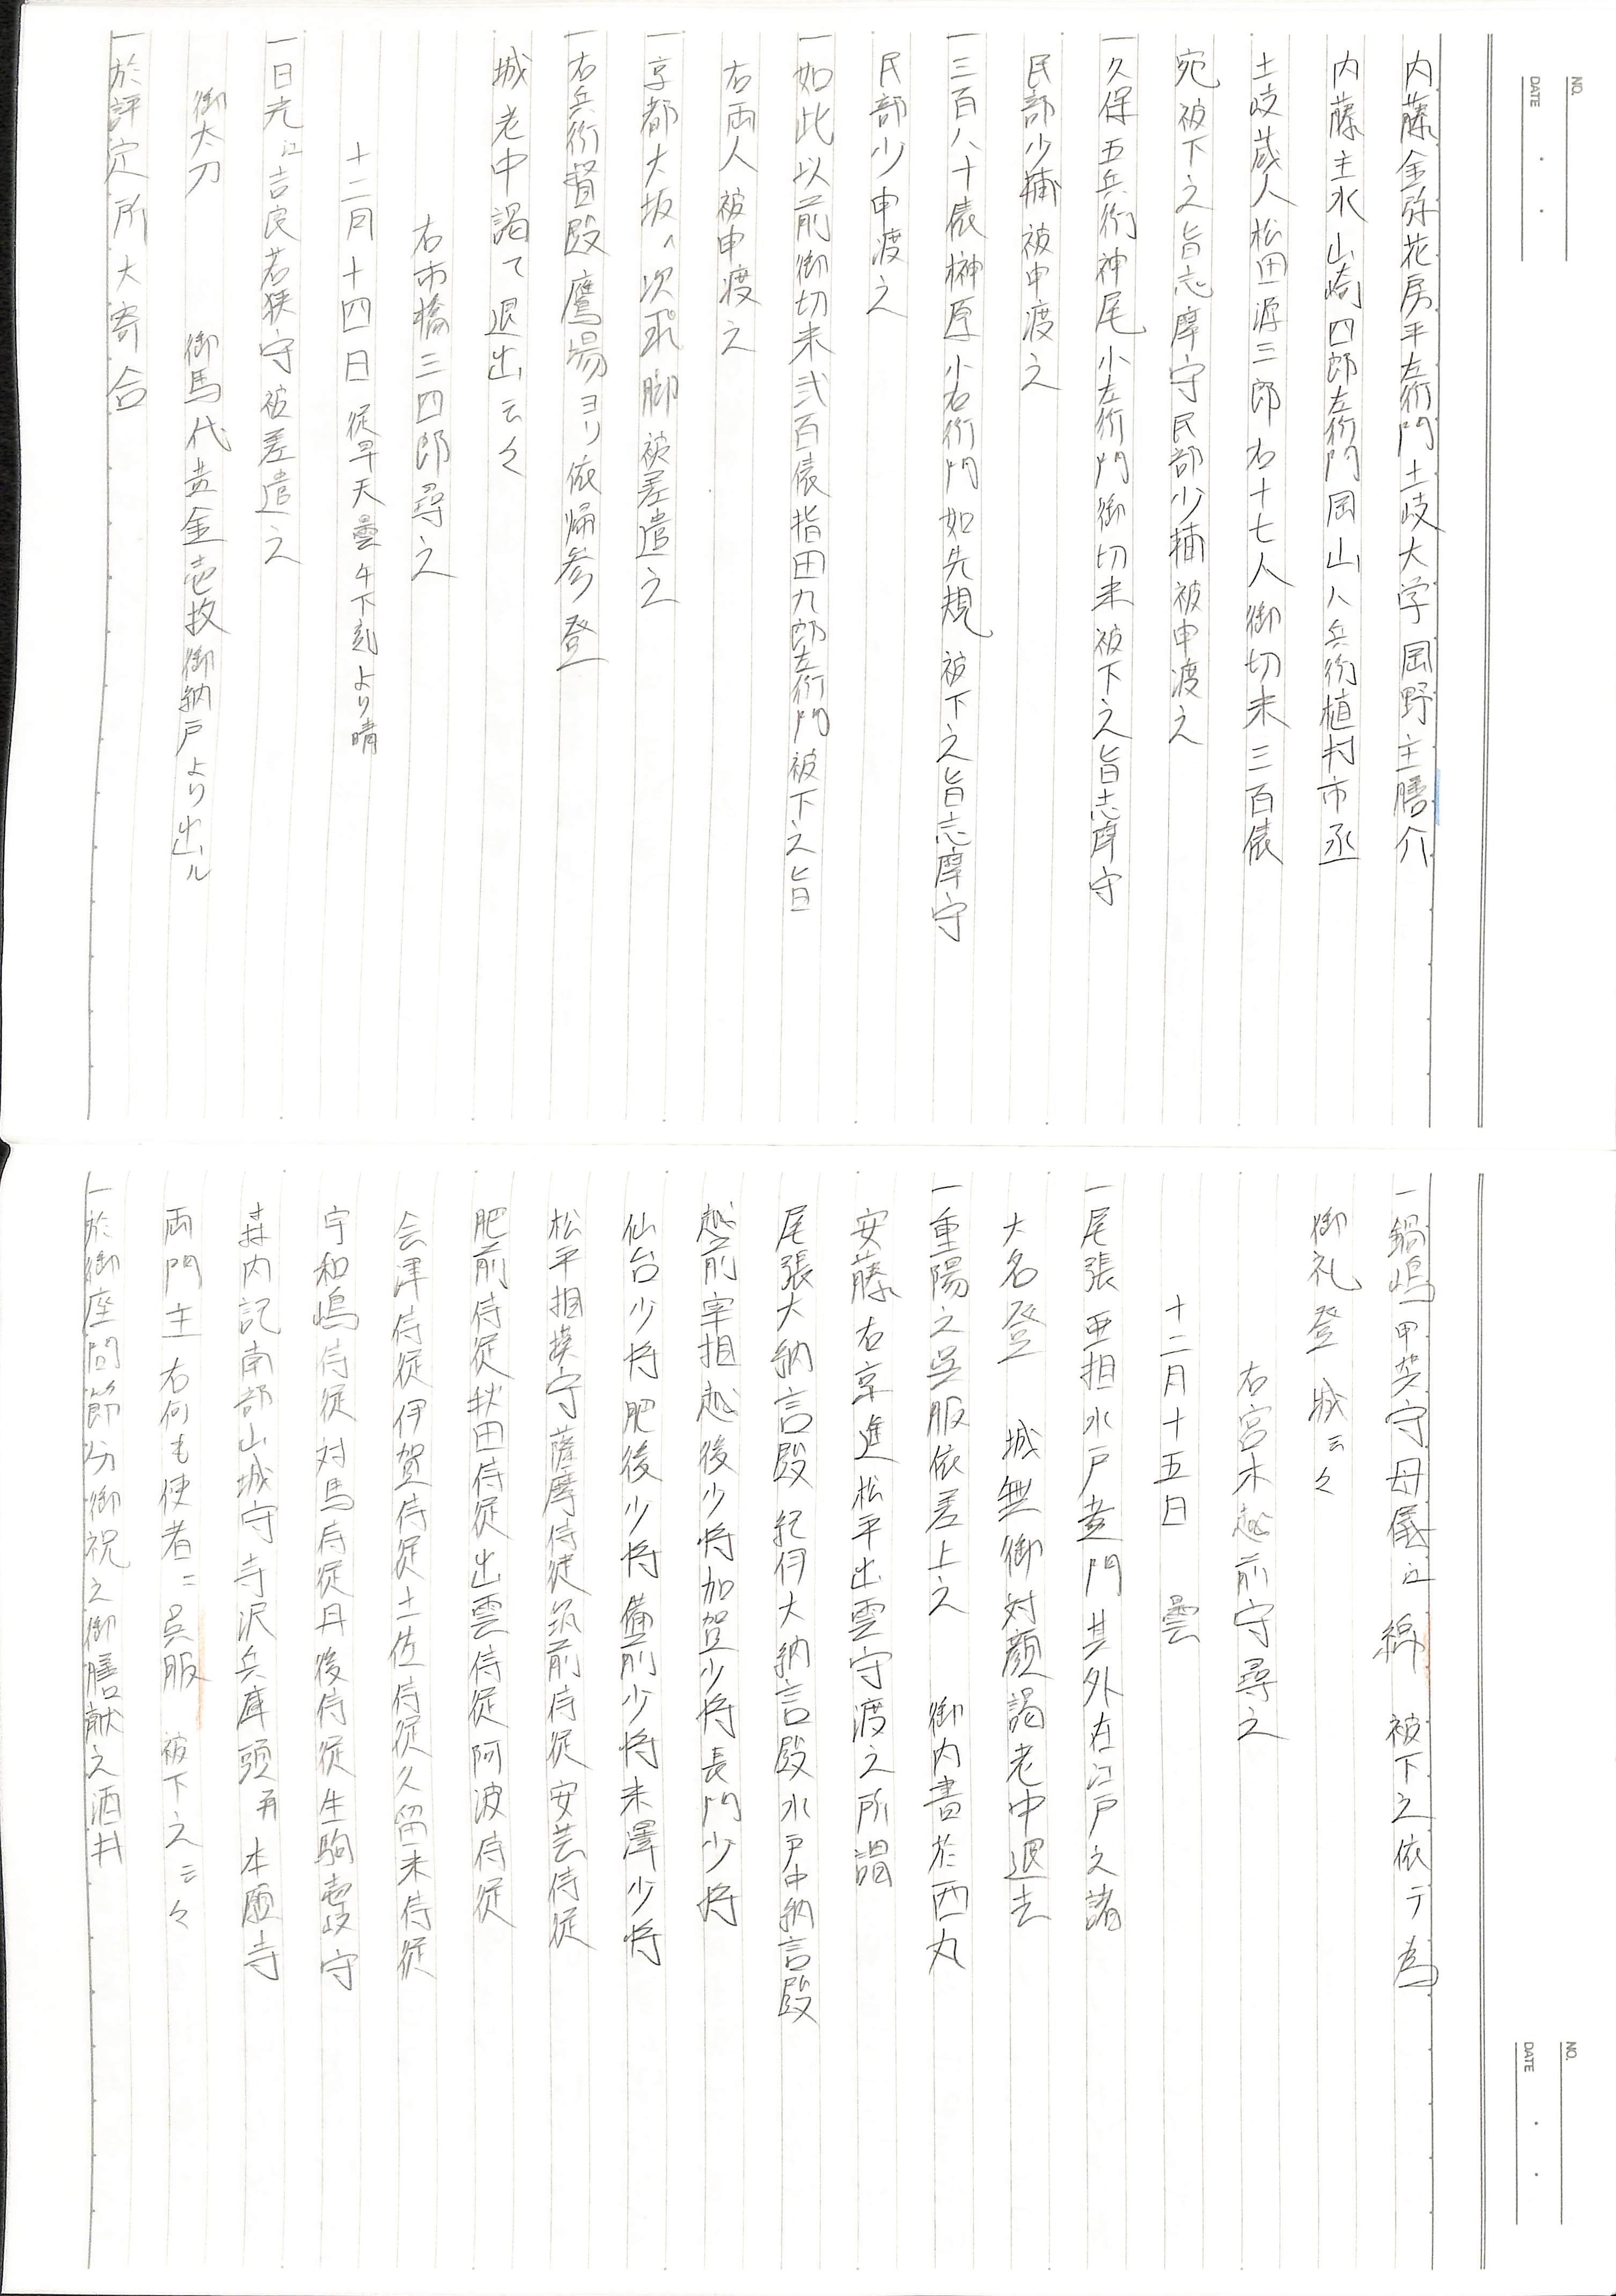 NO.
DATE
内藤金弥花房平左衛門土岐大学岡野主膳介
内藤主水山崎四郎左衛門岡山八兵衛植村市丞
土岐蔵人松田源三郎右十七人御切米三百俵
宛被下之旨志摩守民部少輔被申渡之
一久保五兵衛神尾小左衛門御切米被下之旨志摩守
民部少輔被申渡之
一三百八十俵榊原小右衛門如先規被下之旨志摩守
民部少申渡之
一如此以前御切米弐百俵指田九郎左衛門被下之旨
右両人被申渡之
一京都大坂へ次飛脚被差遣之
一右兵衛督殿鷹場ヨリ依帰参登
城老中謁て退出云々
右市橋三四郎尋之
十二月十四日従早天曇午下刻より晴
一日光江吉良若狭守被差遣之
御太刀 御馬代黄金壱枚御納戸より出ル
一於評定所大寄合
NO.
DATE
一鍋嶋甲斐守母儀江綿被下之依テ為
御礼登 城云々
右宮木越前守尋之
十二月十五日 曇
一尾張亜相水戸黄門其外在江戸之諸
大名登 城無御対顔謁老中退去
一重陽之呉服依差上之 御内書於西丸
安藤右京進松平出雲守渡之所謂
尾張大納言殿紀伊大納言殿水戸中納言殿
越前宰相越後少将加賀少将長門少将
仙台少将肥後少将備前少将米澤少将
松平相模守薩摩侍従筑前侍従安芸侍従
肥前侍従秋田侍従出雲侍従阿波侍従
会津侍従伊賀侍従土佐侍従久留米侍従
宇和嶋侍従対馬侍従丹後侍従生駒壱岐守
森内記南部山城守寺沢兵庫頭再本願寺
両門主右何も使者ニ呉服 被下之云々
一於御座間節分御祝之御膳献之酒井